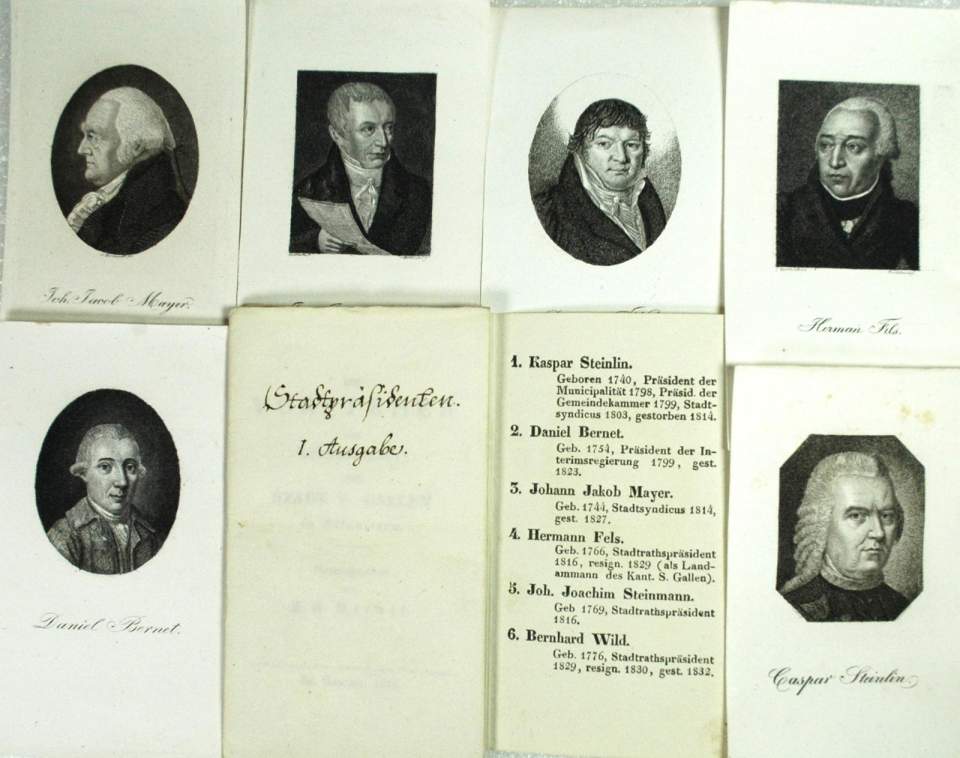 Joh. Jacob Mayer.
Herman Fels.
Daniel Bernet.
Stadtpräsidenten.
I. Ausgabe.
1. Kaspar Steinlin.
Geboren 1740, Präsident der
Municipalität 1798, Präsid. der
Gemeindekammer 1799, Stadt-
syndicus 1803, gestorben 1814.
2. Daniel Bernet.
Geb. 1754, Präsident der In-
terimsregierung 1799, gest.
1823.
3. Johann Jakob Mayer.
Geb. 1744, Stadtsyndicus 1814,
gest. 1827.
4. Hermann Fels.
Geb. 1766, Stadtrathspräsident
1816, resign. 1829 (als Land-
ammann des Kant. S. Gallen).
5. Joh. Joachim Steinmann.
Geb 1769, Stadtrathspräsident
1816.
6. Bernhard Wild.
Geb. 1776, Stadtrathspräsident
1829, resign. 1830, gest. 1832.
Caspar Steinlin